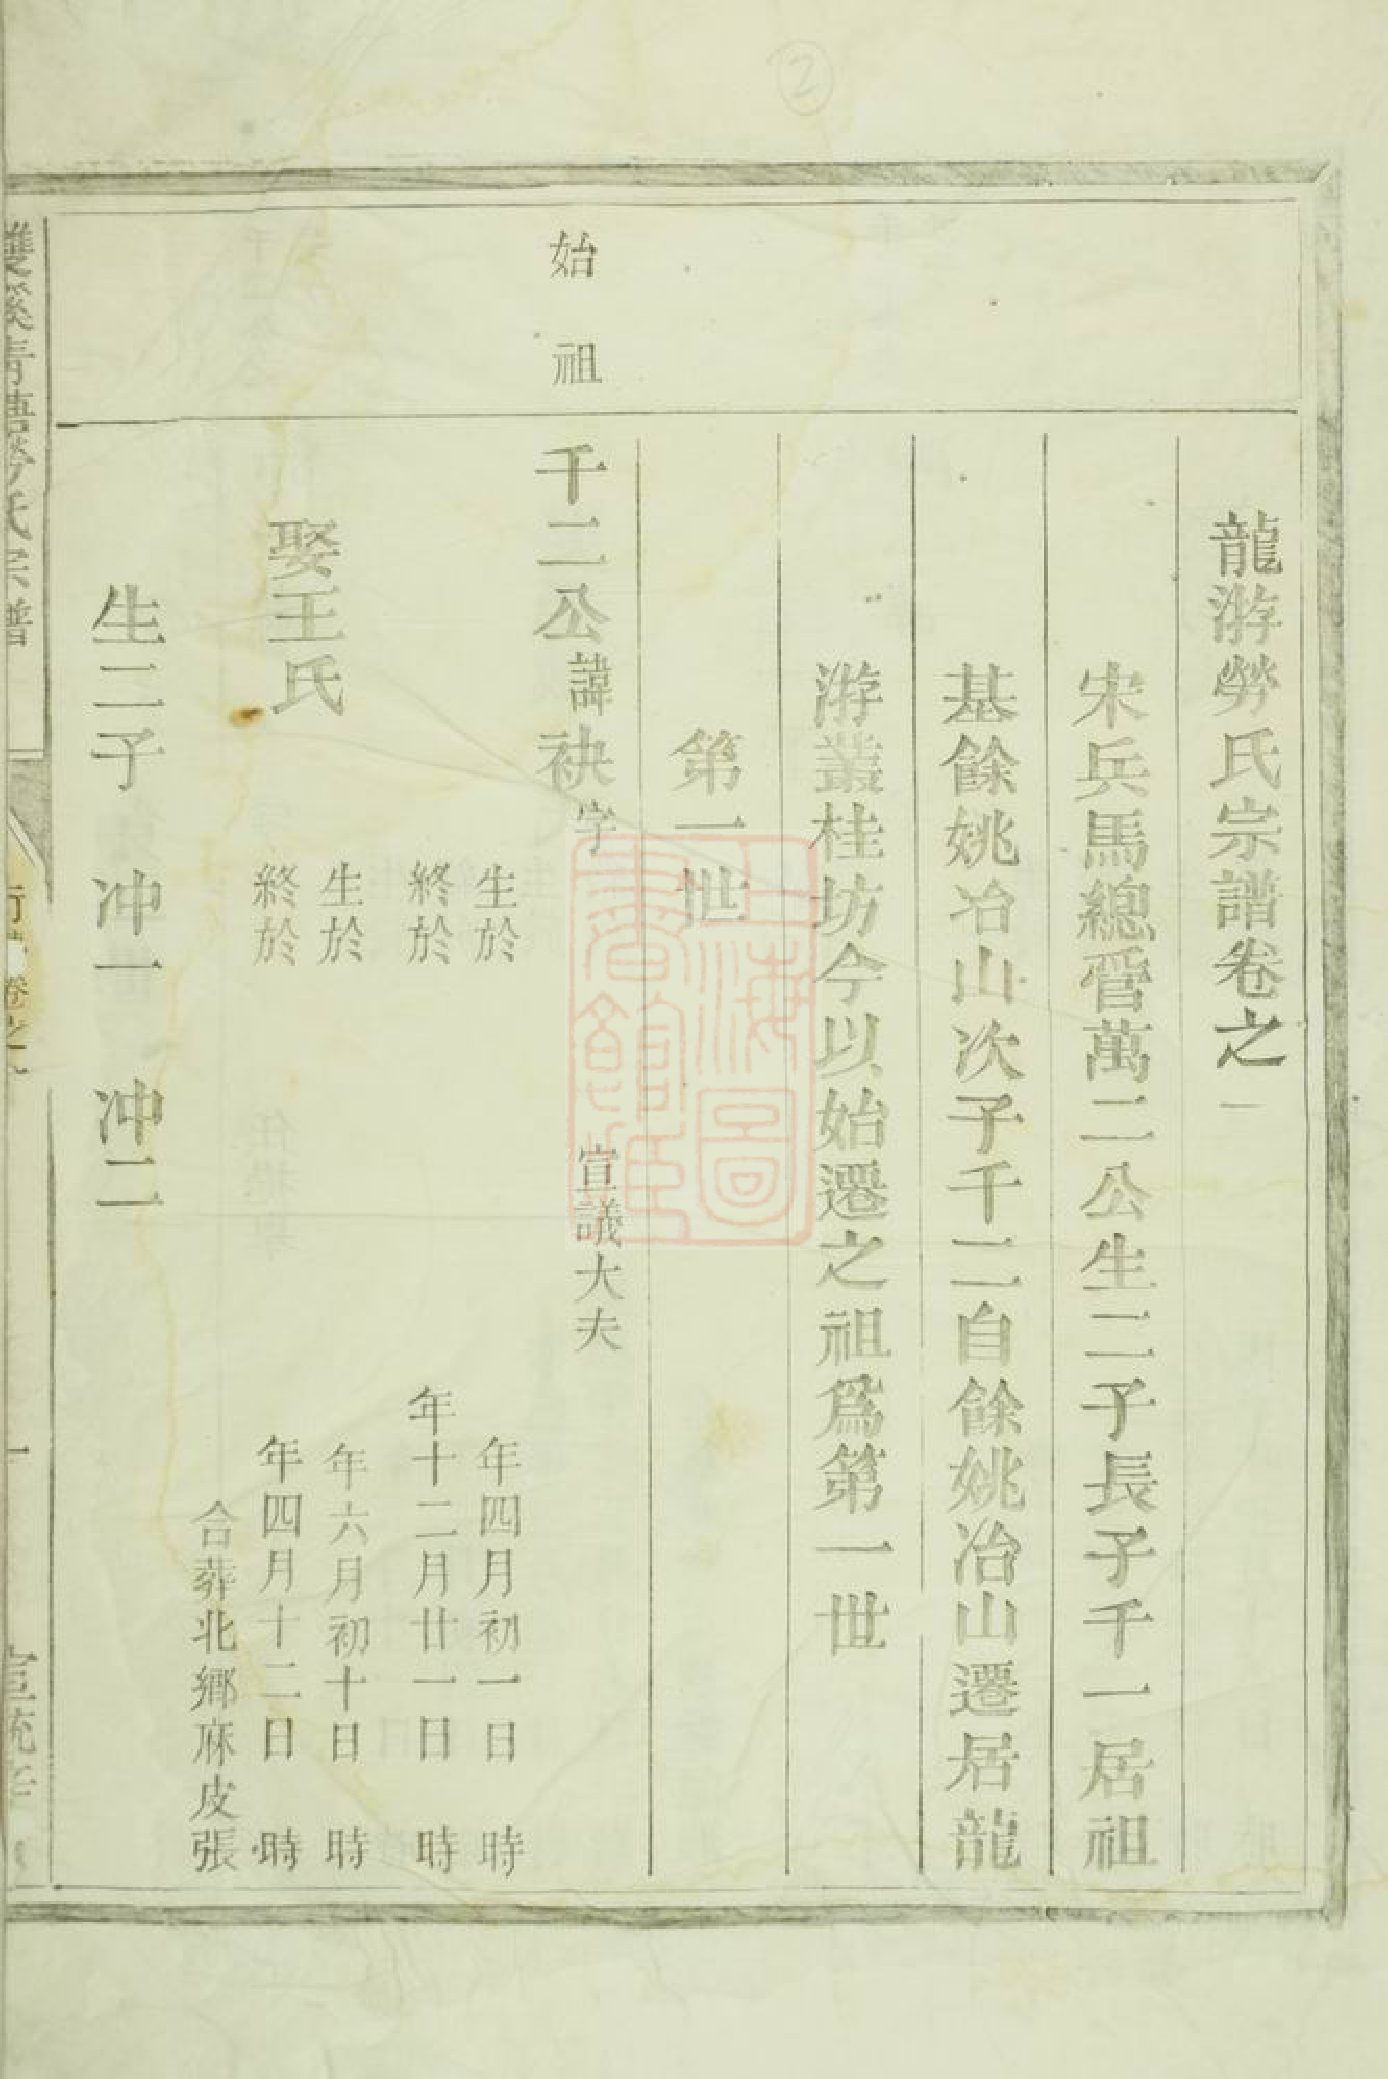 龍游勞氏宗譜卷之一
宋兵馬總晉萬二公生二子長子千一居祖
基餘姚冶山次子千二自餘姚冶山遷居龍
游叢桂坊今以始遷之祖爲第一世
第一世
始祖
千二公諱袂字 宣議大夫
生於 年四月初一日 時
終於 年十二月廿一日 時
娶王氏
生於 年六月初十日 時
終於 年四月十二日 時
合葬北鄉麻皮張
生二子 冲一 冲二
雙溪青塘勞氏宗譜
行 卷之
一
宣統
上海圖書館藏
2